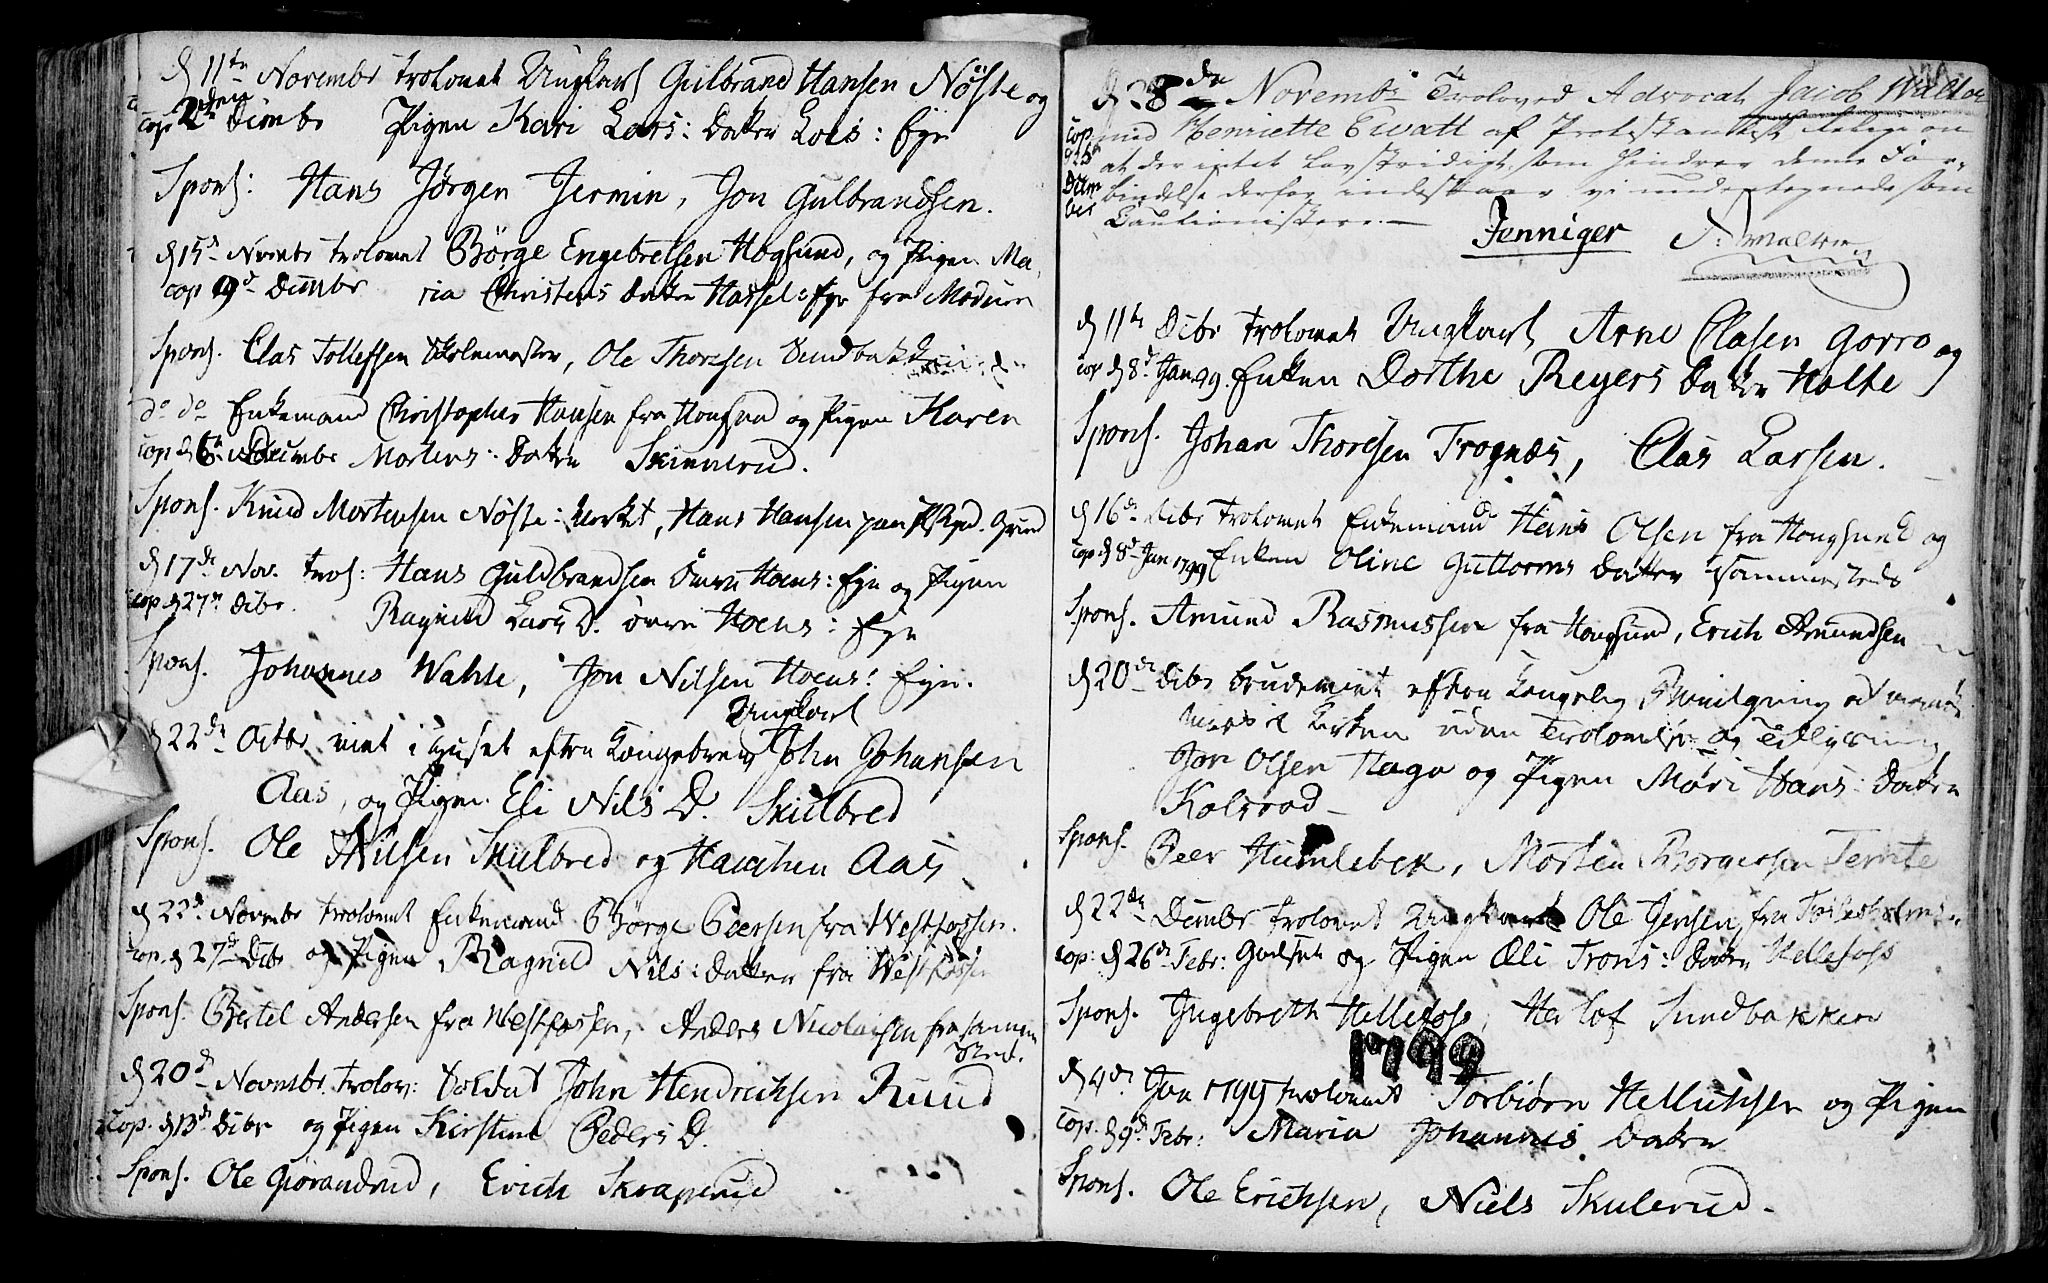 d 11te Novembr trolovet Ungkarl Gulbrand Hansen Nøste og
cop 2den Decmbr Pigen Kari Lars: Datter Loes: Eye
Spons: Hans Jørgen Jermin, Jon Gulbrandsen.
d 15de Novmbr trolovet Børge Engebretsen Hogsund, og Pigen Ma-
cop 9d Decmbr ria Christens Datter Hassel: Eye fra Modum
Spons. Clas Tollefsen Skolemester, Ole Thoresen Sundbakken
do do Enkemand Christopher Hansen fra Hougsund og Pigen Karen
cop d 6te Decembr Mortens: Datter Skinnerud.
Spons. Knud Mortensen Nøste: Verket, Hans Hansen Grund
d 17de Nov. trol: Hans Guldbrandsen Øvre Hoens: Eye og Pigen
cop d 27de Decbr. Ragnild Lars D. øvre Hoens: Eye
Spons. Johannes Wahle, Jon Nilsen Hoens: Eye.
Ungkarl
d 22de Octbr viet i Huset efter Kongebrev John Johansen
Aas, og Pigen Eli Nils D. Skulbred
Spons. Ole Nilsen Skulbred og Haachen Aas
d 22d Novmbr trolovet Enkemand Børge Peersen fra Westfossen.
cop. d 27de Decbr og Pigen Ragnild Nils: Datter fra Westfossen
Spons. Bertel Andersen fra Westfossen, Anders Nicolaisen fra sammen
sted.
d 20d Novmbr. trolov: Soldat John Hendrichsen Ruud
cop. d 13d Decbr og Pigen Kirstine Peders D.
Spons. Ole Giørandrud, Erich Skraperud
d 28de Novembr Troloved Advocat Jacob Walter
cop. med Henriette Ewatt af Protestantisk Religion
at der intet Lovstridigt, som hindrer denne For-
Decem bindelse derfor indestaar vi undertegnede som
ber Cautionister.
Jenniger Walter
d 11te Decbr trolovet Ungkarl Arne Clasen Gorro og
cop d 8d Jan 99. Enken Dorthe Reyers Datter Holte
Spons. Johan Thoresen Trognæs, Clas Larsen.
d 16de Decbr trolovet Enkemand Hans Olsen fra Hougsund og
cop d 8d Jan 1799 Enken Oline Guttorms Datter sammesteds
Spons. Amund Rasmussen fra Hougsund, Erich Amundsen
d 20de Decbr Brudeviet efter Kongelig Bevilgning at maatte
vies i Kirken uden Trolovelse og Tillysning
Jon Olsen Haga og Pigen Mari Hans: Datter
Kolsrod
Spons. Peer Humlebek, Morten Borgersen Temte
d 22de Decmbr trolovet Ungkarl Ole Jensen fra
cop: d 26de Febr: Godset og Pigen Eli Trons: Datter Hellefoss
Spons. Ingebreth Hellefoss, Herlof Sundbakken
1799
d 4de Jan 1799 trolovet Torbiørn Hellichsen og Pigen
cop. d 9d Febr: Maria Johannes Datter
Spons. Ole Erichsen, Niels Skulerud.